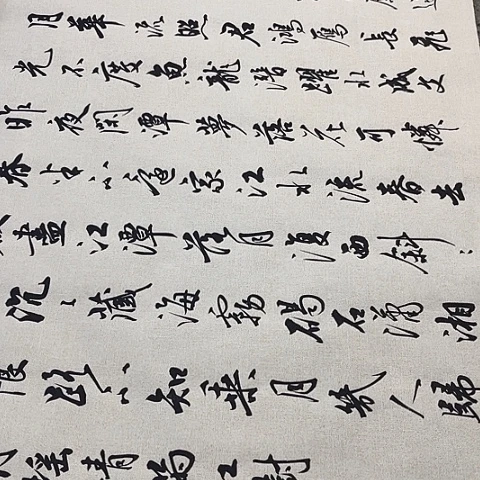 月華流照君鴻雁長飛
光不度魚龍潛躍水成文
昨夜閑潭夢落花可憐
春半不還家江水流春去
盡江潭落月復西斜:
沉〻藏海霧碣石瀟湘
限路不知乘月幾人歸
搖情滿江樹